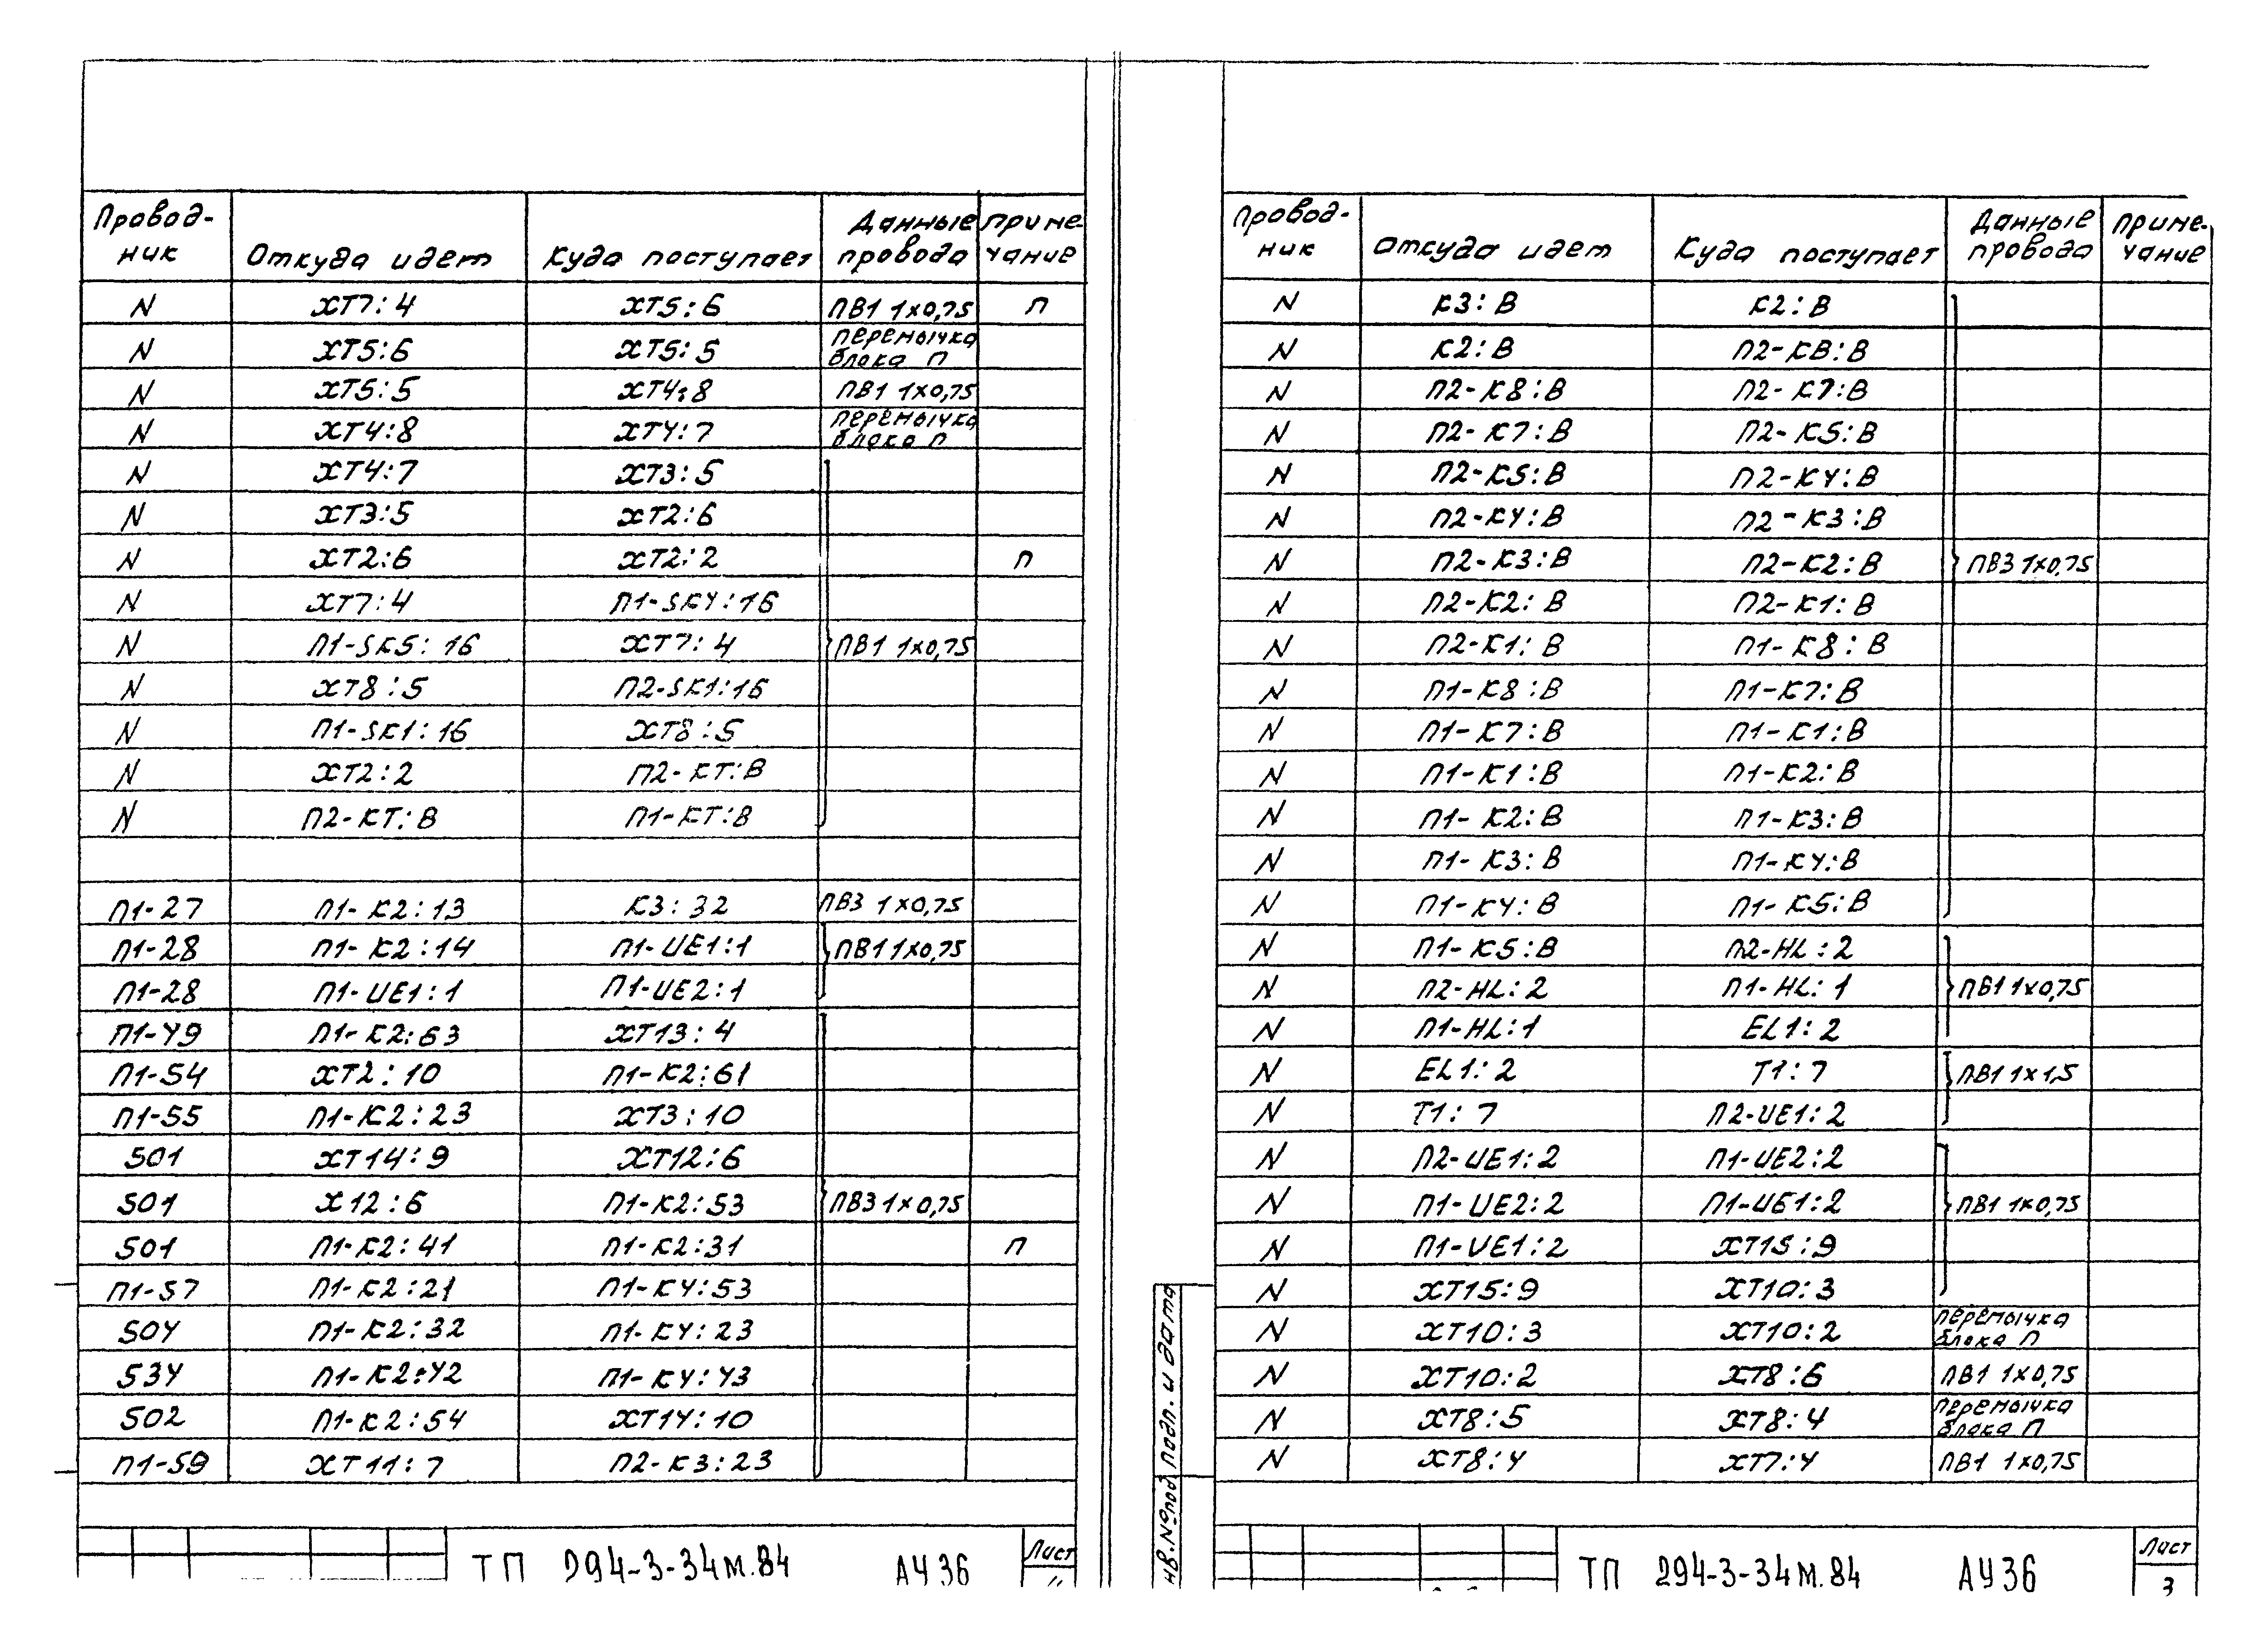 Провод-
ник
Откуда идет
Куда поступает
Данные
провода
Приме-
чание
N ХТ7:4 ХТ5:6 ПВ1 1×0,75 П
N ХТ5:6 ХТ5:5 перемычка
блока П
N ХТ5:5 ХТ4:8 ПВ1 1×0,75
N ХТ4:8 ХТ4:7 перемычка
блока П
N ХТ4:7 ХТ3:5
N ХТ3:5 ХТ2:6
N ХТ2:6 ХТ2:2 П
N ХТ7:4 П1-SK4:16
N П1-SK5:16 ХТ7:4 ПВ1 1×0,75
N ХТ8:5 П2-SK1:16
N П1-SK1:16 ХТ8:5
N ХТ2:2 П2-КТ:В
N П2-КТ:В П1-КТ:В
П1-27 П1-К2:13 К3:32 ПВ3 1×0,75
П1-28 П1-К2:14 П1-UE1:1 ПВ1 1×0,75
П1-28 П1-UE1:1 П1-UE2:1
П1-49 П1-К2:63 ХТ13:4
П1-54 ХТ2:10 П1-К2:61
П1-55 П1-К2:23 ХТ3:10
501 ХТ14:9 ХТ12:6
501 Х12:6 П1-К2:53 ПВ3 1×0,75
501 П1-К2:41 П1-К2:31 П
П1-57 П1-К2:21 П1-К4:53
504 П1-К2:32 П1-К4:23
534 П1-К2:42 П1-К4:43
502 П1-К2:54 ХТ14:10
П1-59 ХТ11:7 П2-К3:23
ТП 294-3-34м.84 АУ36 Лист
Провод-
ник
Откуда идет
Куда поступает
Данные
провода
Приме-
чание
N К3:В К2:В
N К2:В П2-КВ:В
N П2-К8:В П2-К7:В
N П2-К7:В П2-К5:В
N П2-К5:В П2-К4:В
N П2-К4:В П2-К3:В
N П2-К3:В П2-К2:В ПВ3 1×0,75
N П2-К2:В П2-К1:В
N П2-К1:В П1-К8:В
N П1-К8:В П1-К7:В
N П1-К7:В П1-К1:В
N П1-К1:В П1-К2:В
N П1-К2:В П1-К3:В
N П1-К3:В П1-К4:В
N П1-К4:В П1-К5:В
N П1-К5:В П2-HL:2
N П2-HL:2 П1-HL:1 ПВ1 1×0,75
N П1-HL:1 EL1:2
N EL1:2 Т1:7 ПВ1 1×1,5
N Т1:7 П2-UE1:2
N П2-UE1:2 П1-UE2:2
N П1-UE2:2 П1-UE1:2 ПВ1 1×0,75
N П1-UE1:2 ХТ15:9
N ХТ15:9 ХТ10:3
N ХТ10:3 ХТ10:2 перемычка
блока П
N ХТ10:2 ХТ8:6 ПВ1 1×0,75
N ХТ8:5 ХТ8:4 перемычка
блока П
N ХТ8:4 ХТ7:4 ПВ1 1×0,75
нв.№подл Подп. и дата
ТП 294-3-34м.84 АУ36 Лист
3